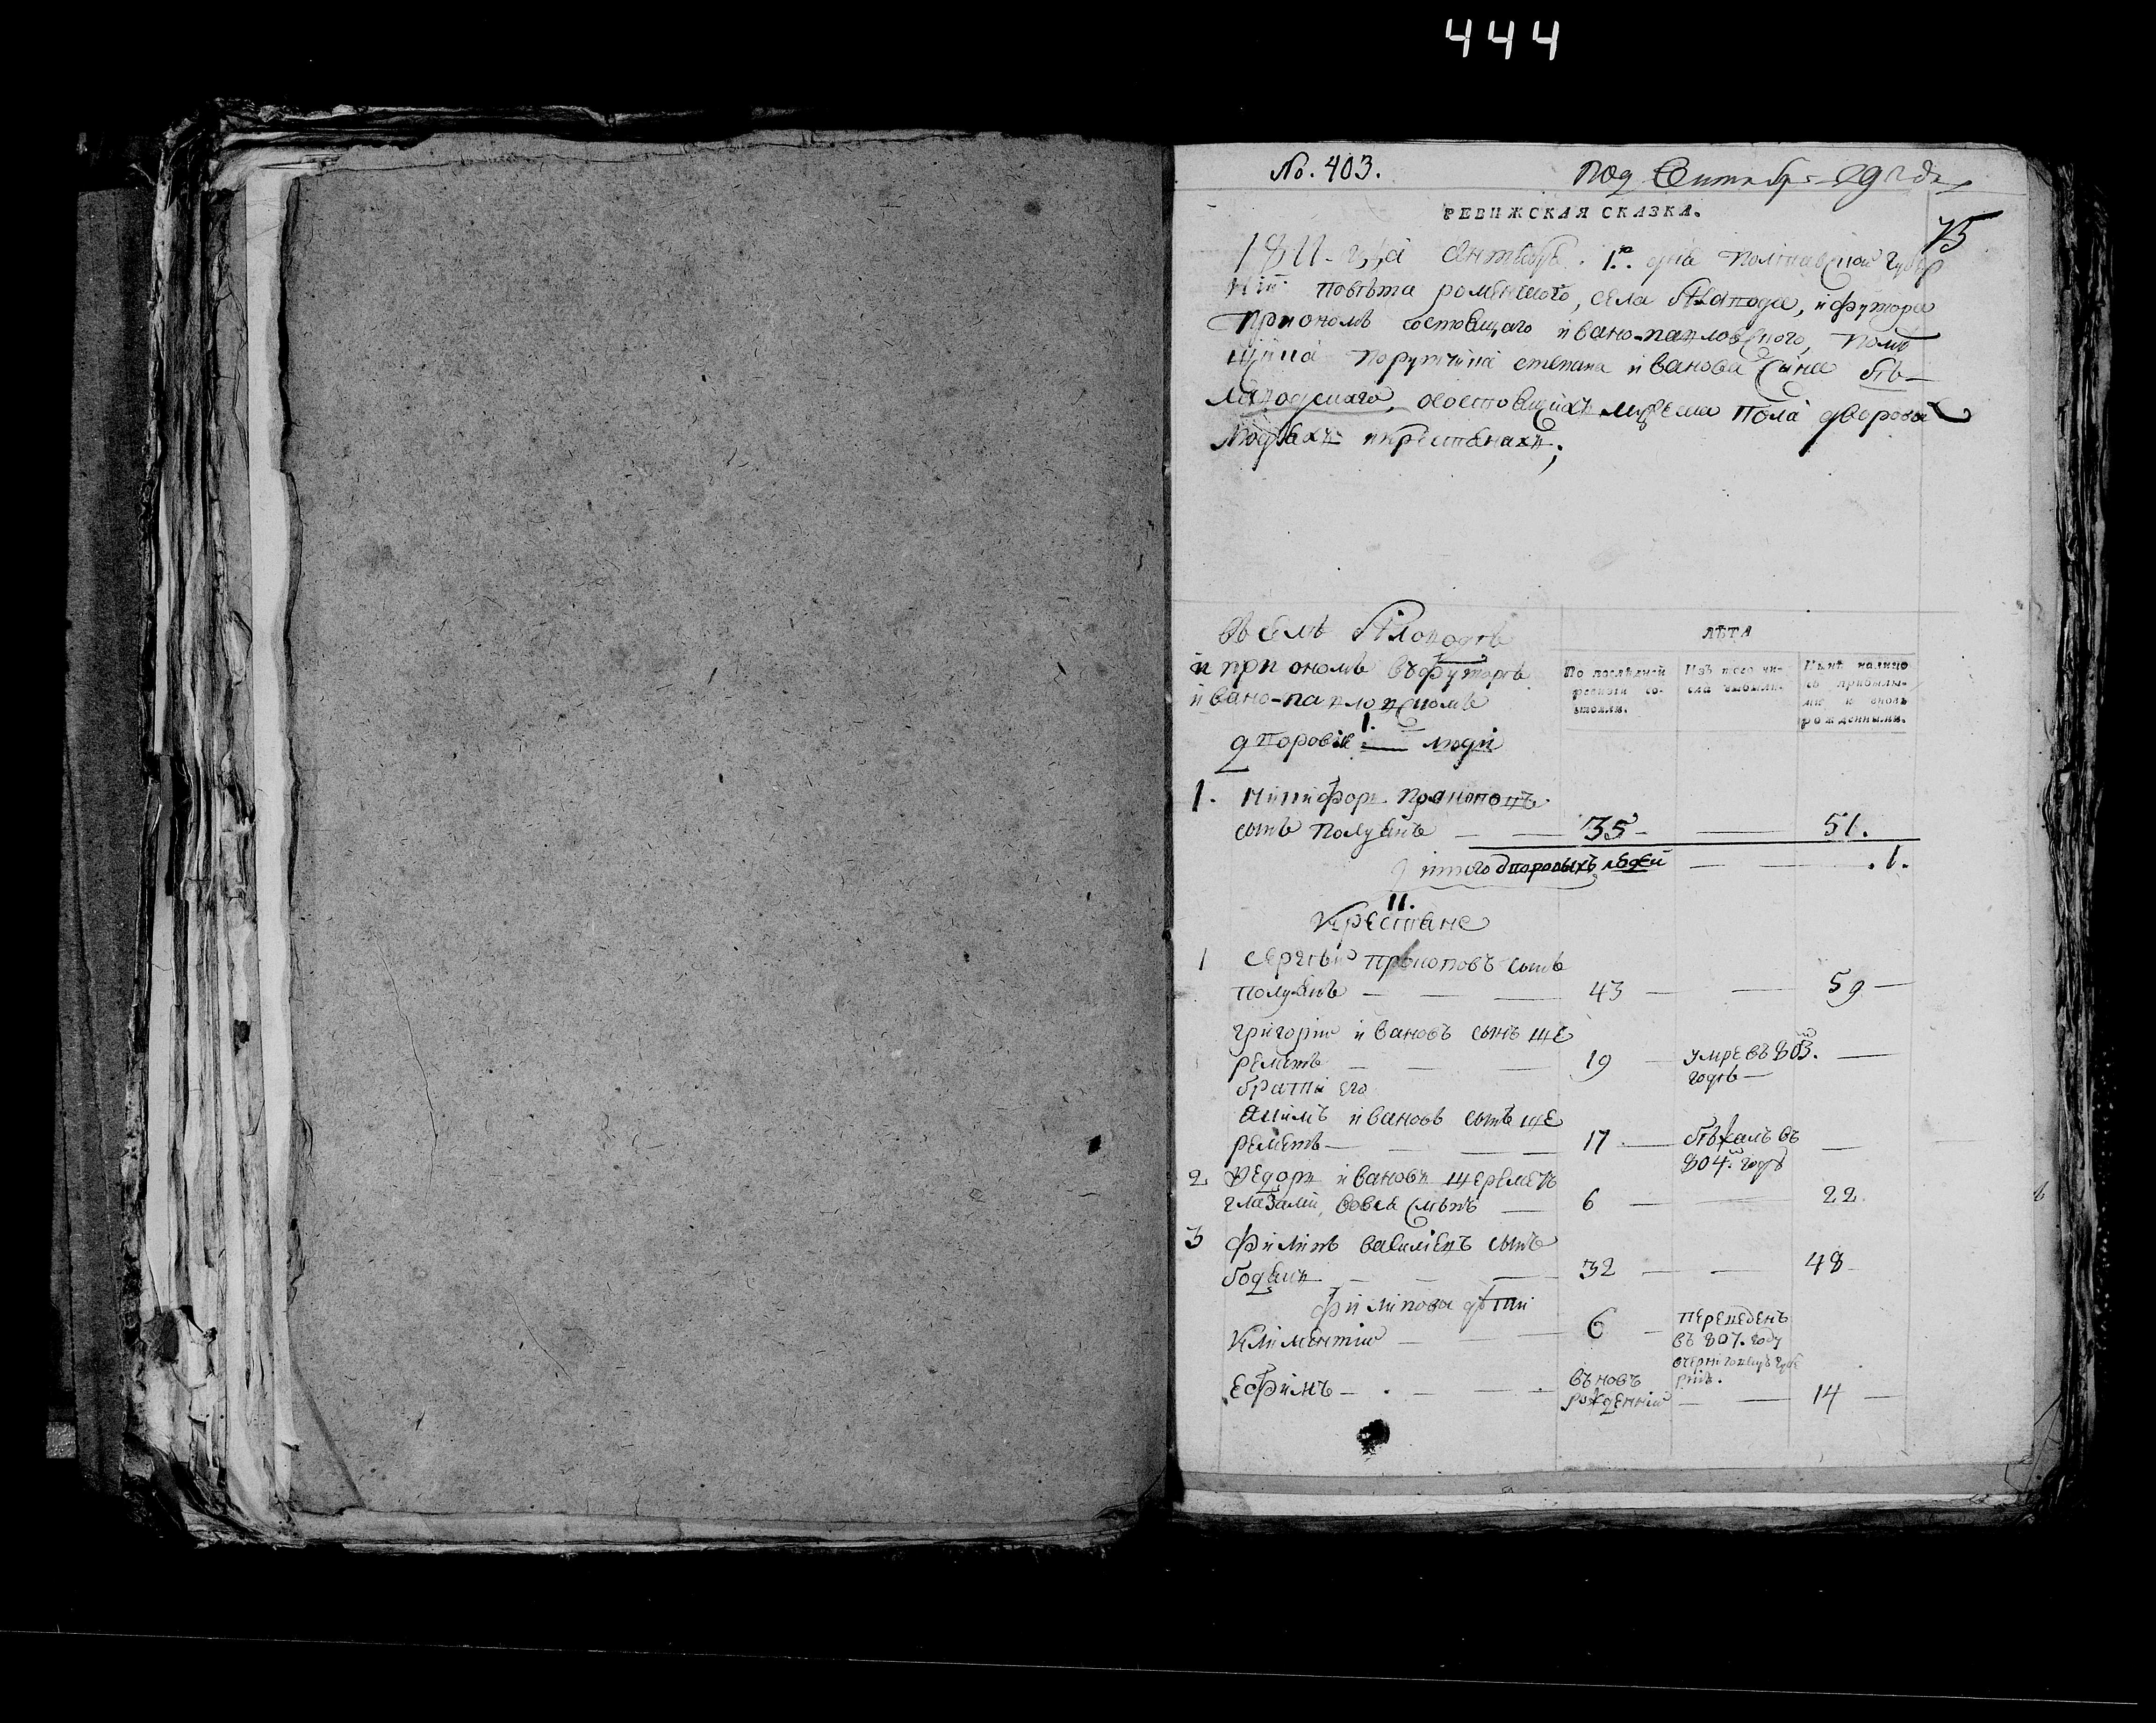 444
No. 403.
Под Сентябр 29 дн
РЕВИЖСКАЯ СКАЗКА.
75
1811 года октября 1го дня Полтавской губер
нии повѣта роменского, села бѣлопода, и футора
при ономъ состоящаго ивано-павловского, помѣ
щика порутчика степана иванова сына бѣ-
лаподскаго, о состоящихъ мужеска пола дворовы
людяхъ и крестянахъ;
въ селѣ бѣлоподѣ
и при ономъ въ футорѣ
ивано-павловскомъ
I.
дворовіе люди
ЛѢТА
По послѣдней ревизіи состояли.
Изъ того числа выбыли.
Нынѣ налицо съ прибылыми и вновь рожденными.
1. никифоръ прокоповъ
сынъ полуянъ — — 35 — — 51.
итого дворовыхъ людей — — .1.
II.
Крестяне
1 сергѣй прокоповъ сынъ
полуянъ — — — 43 — — 59 —
григорій ивановъ сынъ ще
реметъ — — 19 — умре въ 803. —
годѣ —
братъ его
акимъ ивановъ сынъ ще
реметъ — — — 17 — бѣжалъ въ —
804. году
2 федоръ ивановъ щереметъ
глазами вовся слѣпъ — 6 — — 22.
3 филипъ василіевъ сынъ
годунъ — — — 32 — — 48 —
филипови дѣти
климентій — — — 6 — переведенъ
въ 807. году
въ черниговскую губе
рнію.
ефимъ — — — въ новъ
рожденній — — 14 —